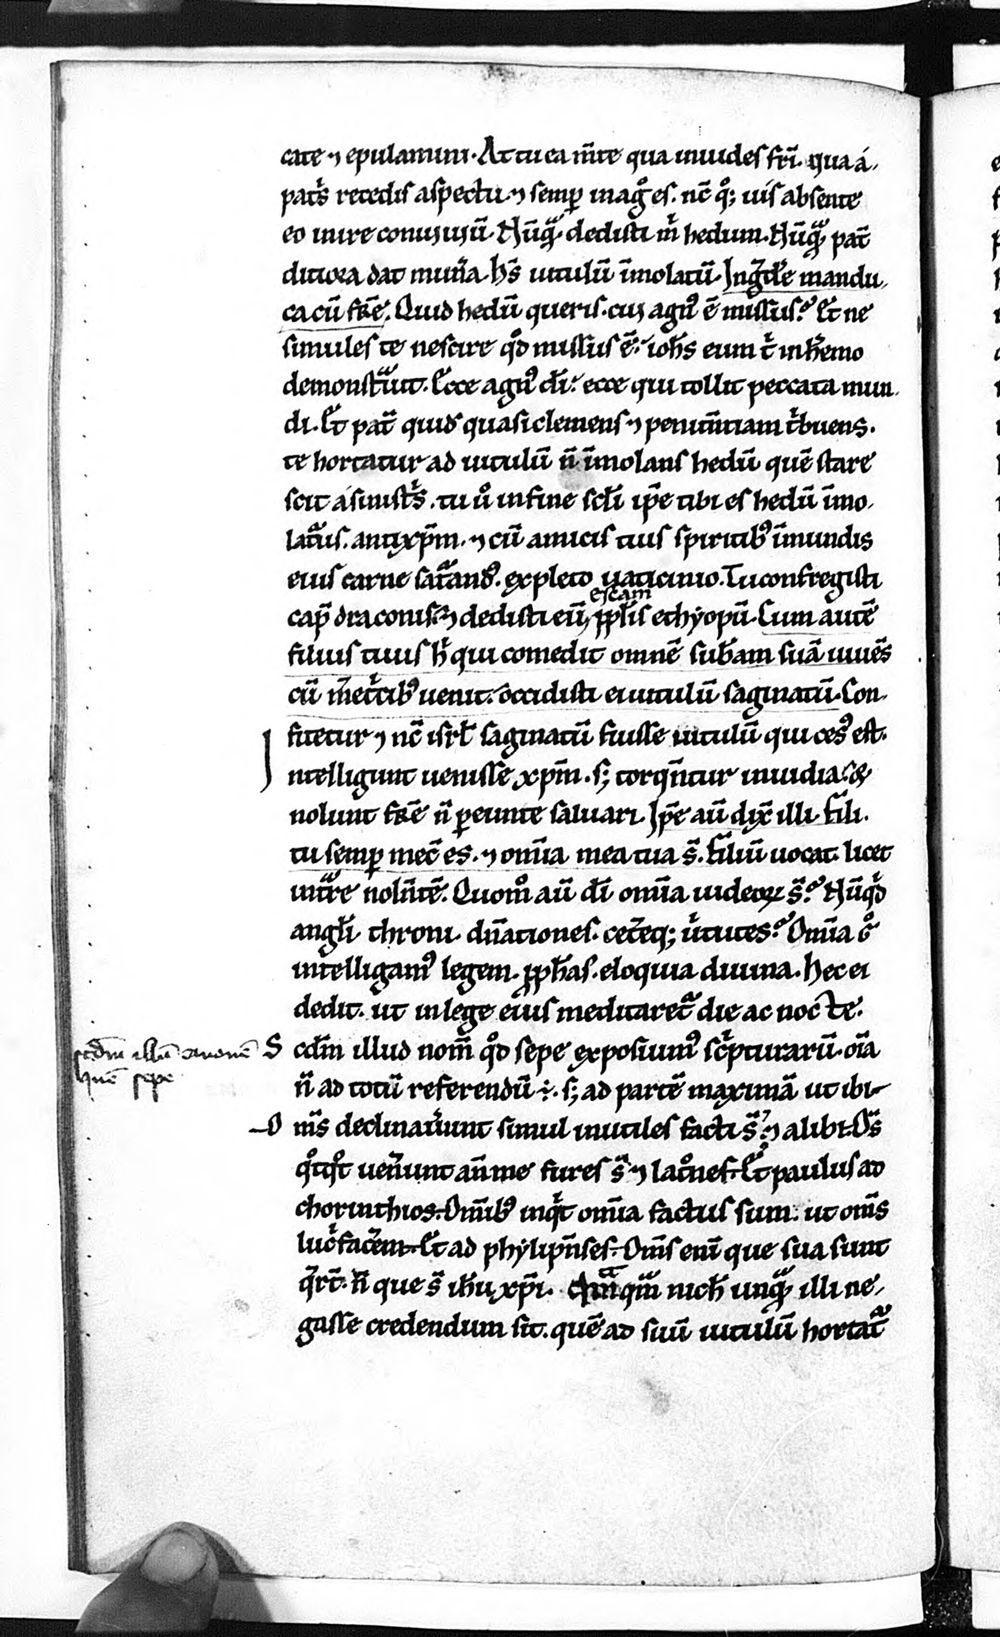 cate ⁊ epulamini. At tu ea m̅te qua inuides fr̅i. qua á
patͥs recedis aspectu. ⁊ semp̲ in agͦ es. nc̅ qͦꝫ uis absente
eo inire conuiuiū. Nūqͣ dedisti m̅ hedum. Nūqͣ pat̅
dit uxa dat mun̅a. hͥs uitulū īmolatū. Ing̅de manducacū
ca cū fr̅e. Quid hedū queris. cui agnꝰ ē missus? Et ne
simules te nescire qd̅ missus ē. ioh̅s eum ī h̅emo
demonst̅uit. Ecce agnꝰ dī. ecce qui tollit peccata mun
di. Et pat̅ quid quasi clemens ⁊ penitn̅tiam tͥbuens.
te hortatur ad uitulū n̅ īmolans hedū quē stare
scit á sinistͥs. tu ů in fine scl̅i ip̅e tibi es hedū īmo
latus. antixp̅m. ⁊ cū amicis tuis spiritibꝰ īmundis
eius carne sat̅andꝰ. expleto uaticinio. Tu confregisti
escam
cap̅ draconis. ⁊ dedisti eū pp̅lis ethyopū. Cum autē
filius tuus hͥ qui comedit omnē sub̅am suā uiuēs
cū m̅etͥcibꝰ uenit. occidisti ei uitulū saginatū. Con
fitetur ⁊ nc̅ isrl̅ saginatū fuisse uitulū qui cesꝰ est.
ntelligunt uenisse xp̅m. sꝫ torqn̅tur inuidia. &
nolunt fr̅e n̅ ꝑeunte saluari. Ip̅e aū dix̅ illi. fili.
tu semp̲ mec̅ es. ⁊ omīa mea tua s̅. filiū uocat. licet
intͣre nolēte. Quomͦ aū dī omīa iudeoꝝ s̅? Nūqͥd
angl̅i. throni. dn̅ationes. cet̅eqꝫ uͥtutes? Omīa gͦ
intelligamꝰ legem. pp̅has. eloquia diuina. hec ei
dedit. ut in lege eius meditaret̅ die ac nocte.
S cdm̅ illud nom̅ qd̅ sepe exposiumꝰ scͥpturarū. oīa
n̅ ad totū referendū ÷. sꝫ ad partē maximā ut ibi
O m̅s declinauer̅unt simul inutiles facti s̅. ⁊ alibi. Om̅s
qͦtqͦt uen̅unt an̅ me fures s̅. ⁊ latͦnes. Et paulus ad
chorinthios. Omībꝰ inqͥt omīa factus sum. ut om̅s
lucͥfacēm. Et ad phylipn̅ses. Om̅s enī que sua sunt
qͥrt̅. n̅ que s̅ ih̅u xp̅i. qͣm̅ nich̅ unqͣ illi ne
gasse credendum sit. quē ad suū uitulū hortat̅
scd̅m illū canonē
quē sepe